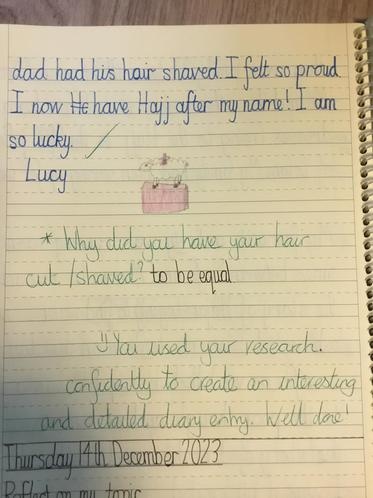 dad had his hair shaved. I felt so proud.
I now He have Hajj after my name! I am
so lucky.
Lucy
* Why did you have your hair
cut / shaved? to be equal
You used your research
confidently to create an interesting
and detailed diary entry. Well done!
Thursday 14th December 2023
Reflect on my topic